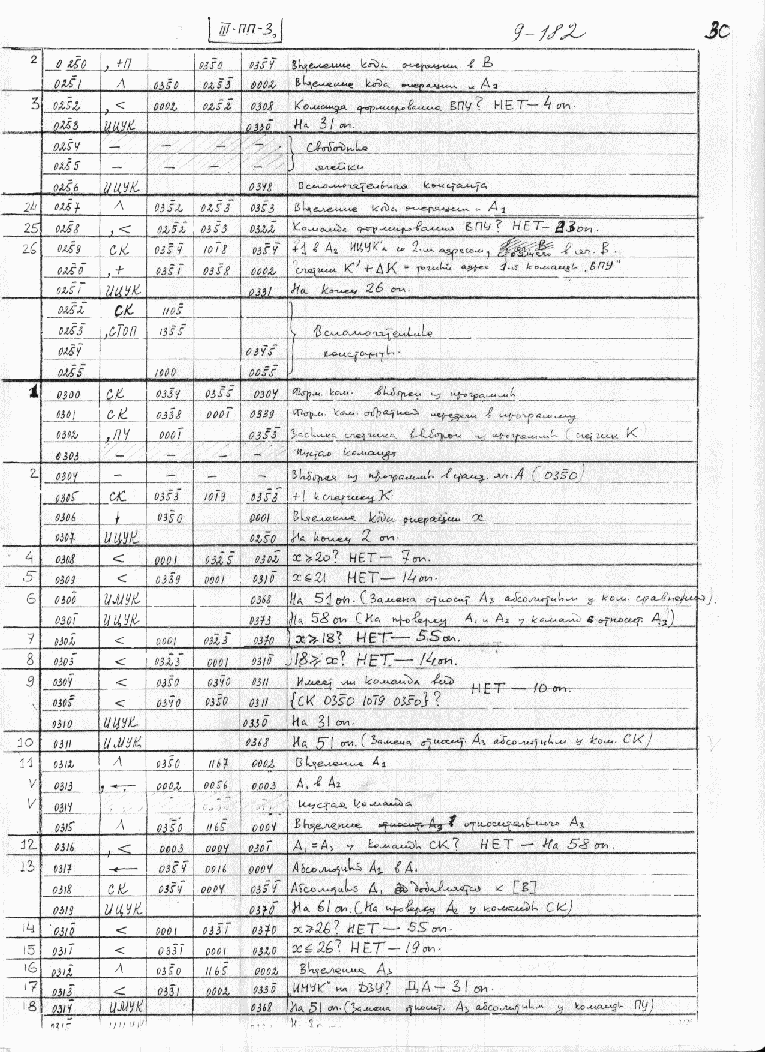 III-ПП-3
9-182
30
2 0250 , +П 0350 0354 Выделение кода операции в В
0251 Λ 0350 0253 0002 Выделение кода операции и A3
3 0252 , < 0002 0252 0308 Команда формирования ВПУ? НЕТ — 4 оп.
0253 ИЦУК 0330 На 31 оп.
0254 — — — — Свободные
0255 — — — — ячейки
0256 ИЦУК 0348 Вспомогательная константа
24 0257 Λ 0352 0253 0353 Выделение кода операции и A1
25 0258 , < 0252 0353 0322 Команда формирования ВПУ? НЕТ — 23 оп.
26 0259 СК 0354 1018 0354 +1 в A2 ИЦУК'а со 2-м адресом, в яч. В.
0250 , + 0351 0358 0002 счетчик К' + ΔК = адрес 1-й команды "ВПУ"
0251 ИЦУК 0331 На конец 26 оп.
0252 СК 1105
0253 , СТОП 1355 Вспомогательные
0254 0345 константы
0255 1000 0055
1 0300 СК 0334 0355 0304 Форм. ком. выборки из программы
0301 СК 0338 0001 0339 Форм. ком. обратной передачи в программу
0302 , ПУ 0001 0353 Засылка счетчика выборки из программы (счетчик К)
0303 — — — — Пустая команда
2 0304 — — — — Выборка из программы в станд. яч. А (0350)
0305 СК 0353 1019 0353 +1 к счетчику К
0306 + 0350 0001 Выделение кода операции x
0307 ИЦУК 0250 На конец 2 оп.
4 0308 < 0001 0325 0302 x ≥ 20? НЕТ — 7 оп.
5 0309 < 0339 0001 0310 x ≤ 21 НЕТ — 14 оп.
6 0300 ИМУК 0368 На 51 оп. (Замена относит. A3 абсолютным у ком. сравнения).
0301 ИЦУК 0373 На 58 оп (На проверку A1 и A2 у команд с относит. A3)
7 0302 < 0001 0323 0370 x ≥ 18? НЕТ — 55 оп.
8 0303 < 0323 0001 0310 18 ≥ x? НЕТ. — 14 оп.
9 0304 < 0350 0340 0311 Имеет ли команда вид НЕТ — 10 оп.
0305 < 0340 0350 0311 {СК 0350 1019 0350}?
0310 ИЦУК 0330 На 31 оп.
10 0311 ИМУК 0368 На 51 оп. (Замена относит. A3 абсолютным у ком. СК)
11 0312 Λ 0350 1167 0002 Выделение A1
V 0313 , ← 0002 0056 0003 A1 в A2
V 0314 Пустая команда
0315 Λ 0350 1165 0004 Выделение относительного A3
12 0316 , < 0003 0004 0301 A1 = A3 у команды СК? НЕТ — На 58 оп.
13 0317 ← 0354 0016 0004 Абсолютный A2 в A1
0318 СК 0354 0004 0354 Абсолютный A1 добавляется к [В]
0319 ИЦУК 0370 На 61 оп. (На проверку A2 у команды СК)
14 0310 < 0001 0331 0370 x ≥ 26? НЕТ — 55 оп.
15 0311 < 0331 0001 0320 x ≤ 26? НЕТ — 19 оп.
16 0312 Λ 0350 1165 0002 Выделение A3
17 0313 < 0331 0002 0330 ИМУК" на ДЗУ? ДА — 31 оп.
18 0314 ИМУК 0368 На 51 оп. (Замена относит. A3 абсолютным у команды ПУ)